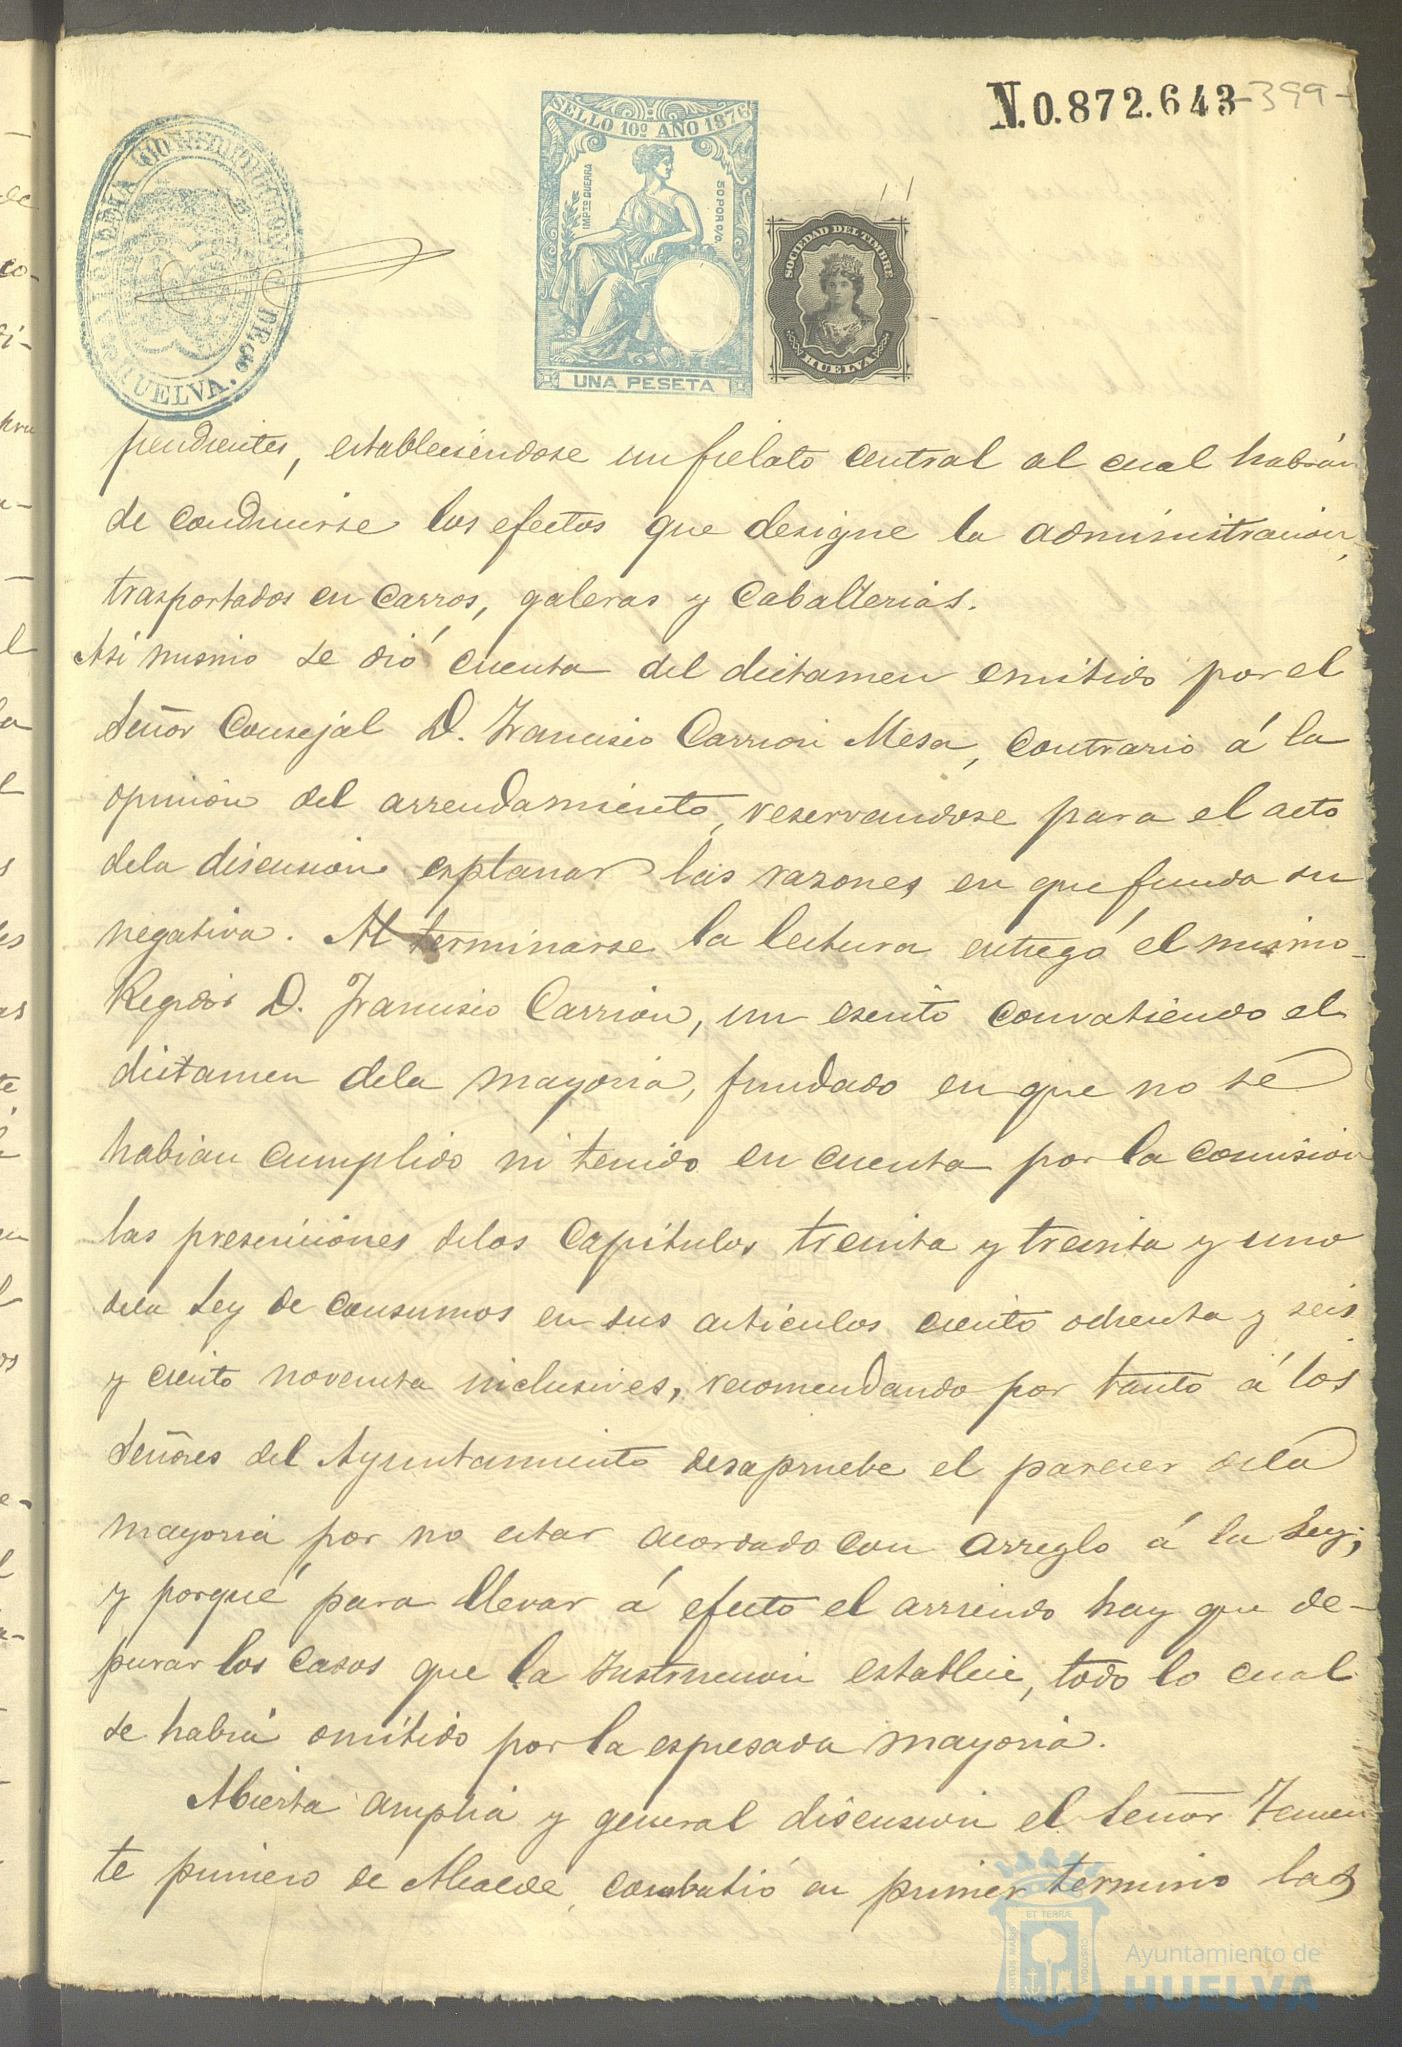 N.0.872.643 -399-
ALCALDIA CONSTITUCIONAL DE HUELVA.
SELLO 10º AÑO 1876
IMPTO GUERRA
50 POR 0/0.
UNA PESETA
SOCIEDAD DEL TIMBRE
HUELVA
pendientes, estableciendose un fielato central al cual habrán
de conducirse los efectos que designe la administracion,
trasportados en carros, galeras y caballerias.
Asi mismo se dió cuenta del dictamen emitido por el
Señor Consejal D. Francisco Carrion Mesa, contrario á la
opinion del arrendamiento, reservandose para el acto
dela discusion esplanar las razones en que funda su
negativa. Al terminarse la lectura entregó el mismo
Regidor D. Francisco Carrion, un escrito convatiendo el
dictamen dela mayoria, fundado en que no se
habian cumplido ni tenido en cuenta por la comision
las presenciones delos Capítulos treinta y treinta y uno
dela Ley de consumos en sus artículos ciento ochenta y seis
y ciento noventa inclusives, recomendando por tanto á los
Señores del Ayuntamiento desapruebe el parecer dela
mayoria por no estar acordado con arreglo á la Ley;
y porqué para llevar á efecto el arriendo hay que de-
purar los casos que la Instruccion establece, todo lo cual
se habia omitido por la espresada mayoria.
Abierta amplia y general discusion el Señor Tenien
te primero de Alcalde, combatió en primer termino las
Ayuntamiento de
HUELVA